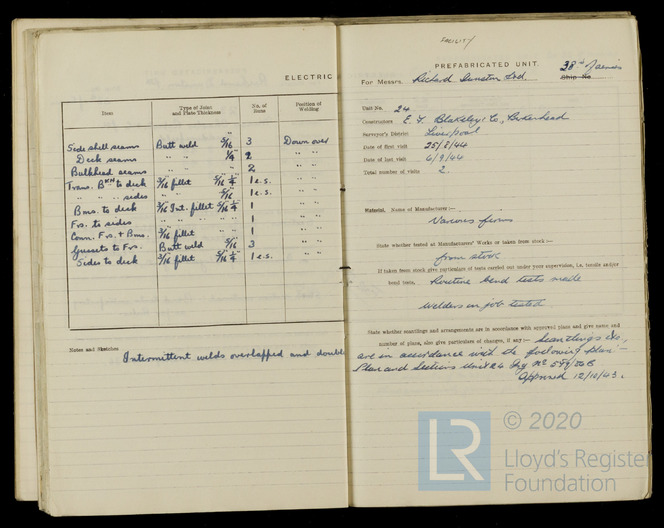 ELECTRIC
Item
Type of Joint
and Plate Thickness
No. of
Items
Position of
Welding
Side shell seams Butt weld 5/16" 3 Down over
Deck seams " " 1/4" 2 " "
Bulkhead seams " " 2 " "
Trans. Bkh to deck 3/16 fillet 5/16" 1/4" 1 e.s. " "
" " " sides " 5/16" 1 e.s. " "
Bms. to deck 3/16 Int. fillet 5/16" 1/4" 1 " "
Frs. to sides " " " " 1 " "
Conn. Frs. + Bms. 3/16 fillet " " 1 " "
Gussets to Frs. Butt weld 5/16 3 " "
Sides to deck 3/16 fillet 5/16" 1/4" 1 e.s. " "
Notes and Sketches
Intermittent welds overlapped and double
FACILITY
PREFABRICATED UNIT.
38 Ship No.
For Messrs. Richard Dunston Ltd
Unit No. 24
Constructors E. F. Blakeley & Co, Birkenhead
Surveyor's District Liverpool
Date of first visit 25/8/44
Date of last visit 6/9/44
Total number of visits 2.
Material. Name of Manufacturer:—
Various firms
State whether tested at Manufacturers' Works or taken from stock:—
from stock
If taken from stock give particulars of tests carried out under your supervision, i.e. tensile and/or
bend tests, Routine bend tests made
Welders on job tested
State whether scantlings and arrangements are in accordance with approved plans and give name and
number of plans, also give particulars of changes, if any:— Scantlings etc,
are in accordance with the following plan:—
Plan and Sections Unit 24 Drg No 599/56B
Approved 12/10/43.
© 2020
LR
Lloyd's Register
Foundation